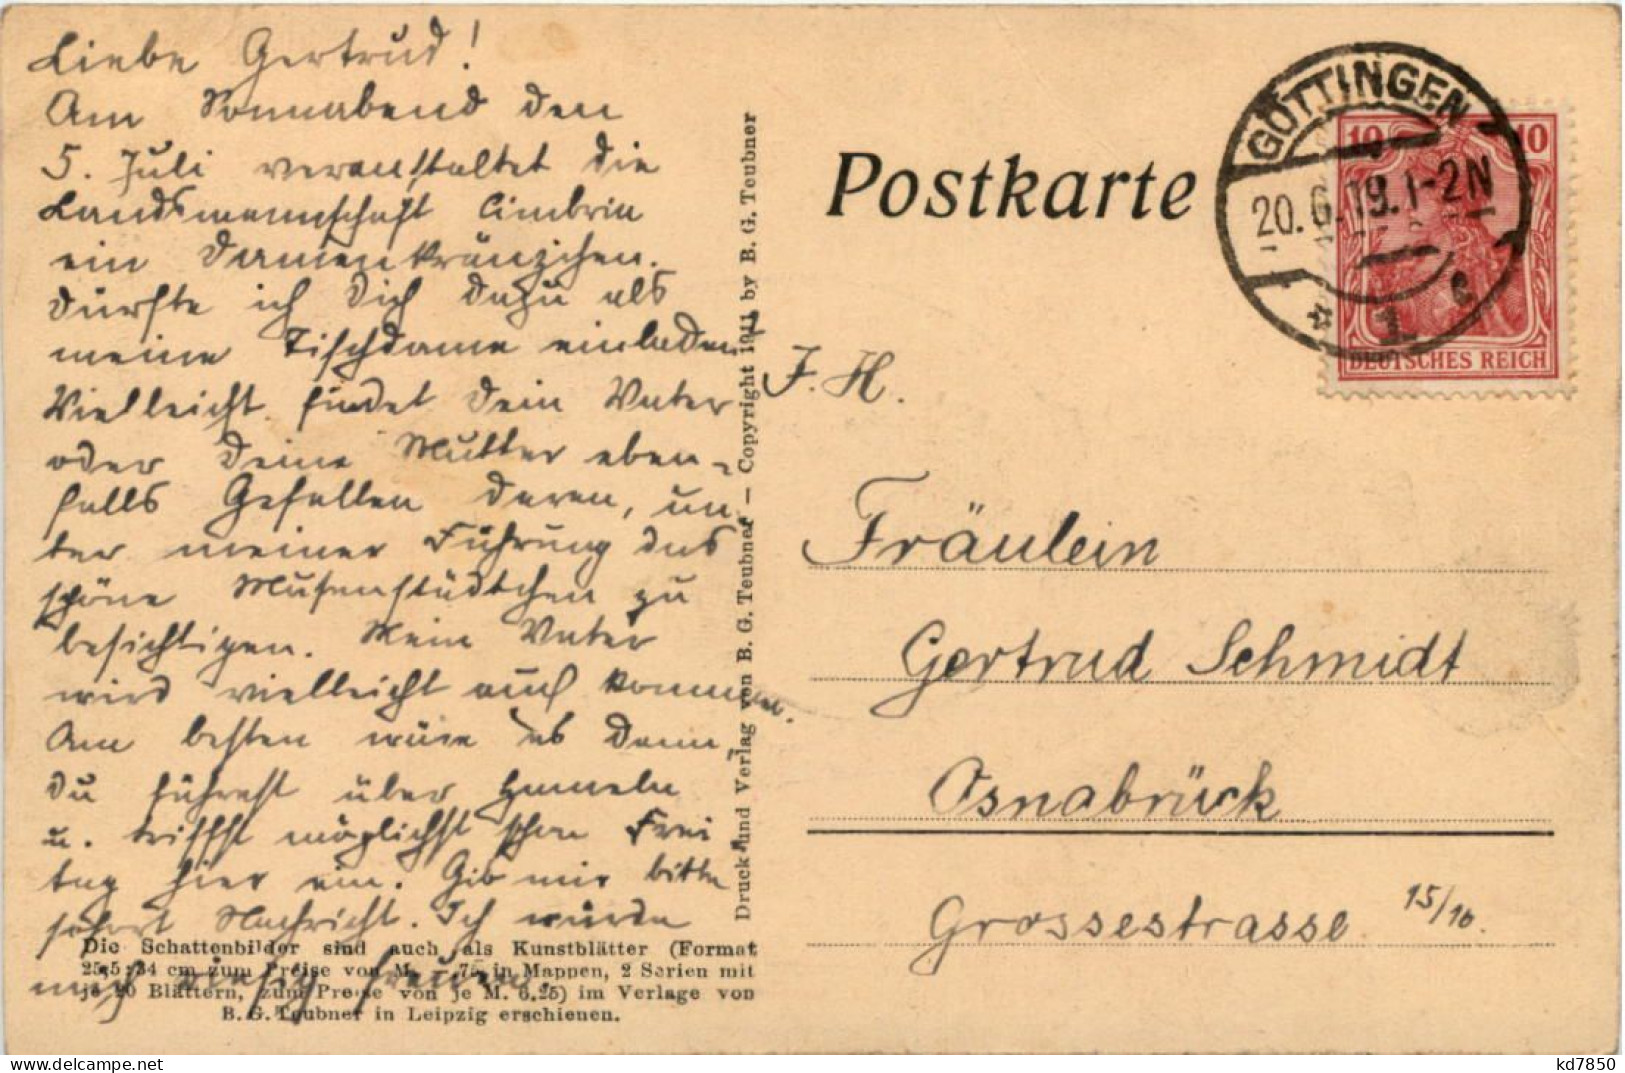 Liebe Gertrud!
Am Sonnabend den
5. Juli veranstaltet die
Landsmannschaft Cimbria
ein Damenkränzchen.
Dürfte ich Dich dazu als
meine Tischdame einladen?
Vielleicht findet Dein Vater
oder Deine Mutter eben-
falls Gefallen daran, un-
ter meiner Führung das
schöne Musenstädtchen zu
besichtigen. Mein Vater
wird vielleicht auch kommen.
Am besten wäre es dann,
Du führest über Hameln
u. triffst möglichst schon Frei
tag hier ein. Gib mir bitte
sofort Nachricht. Ich würde
mich riesig freuen.
J. H.
Die Schattenbilder sind auch als Kunstblätter (Format
25,5:34 cm zum Preise von M. –.75 in Mappen, 2 Serien mit
je 10 Blättern, zum Preise von je M. 6.25) im Verlage von
B. G. Teubner in Leipzig erschienen.
Druck und Verlag von B. G. Teubner — Copyright 1911 by B. G. Teubner
Postkarte
GÖTTINGEN
20.6.19.1-2N
* 1 c
10 10
DEUTSCHES REICH
Fräulein
Gertrud Schmidt
Osnabrück
Grossestrasse 15/16.
kd7850